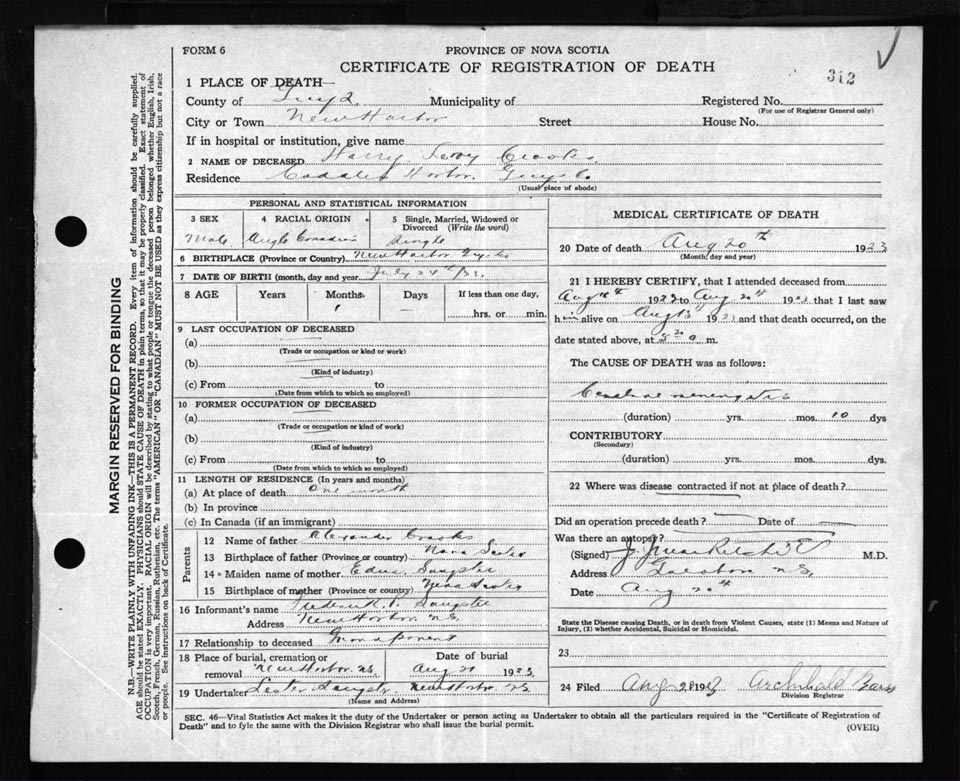 FORM 6
PROVINCE OF NOVA SCOTIA
CERTIFICATE OF REGISTRATION OF DEATH
312
1 PLACE OF DEATH—
County of Guys. Municipality of Registered No.
(For use of Registrar General only)
City or Town New Harbor Street House No.
If in hospital or institution, give name
2 NAME OF DECEASED Harry Leroy Crooks
Residence Harbor Guys Co
(Usual place of abode)
PERSONAL AND STATISTICAL INFORMATION
3 SEX 4 RACIAL ORIGIN 5 Single, Married, Widowed or Divorced (Write the word)
Male Anglo Canadian Single
6 BIRTHPLACE (Province or Country) New Harbor Guys Co
7 DATE OF BIRTH (month, day and year) July
8 AGE Years Months Days If less than one day,
1 — hrs. or min.
9 LAST OCCUPATION OF DECEASED
(a)
(Trade or occupation or kind or work)
(b)
(Kind of industry)
(c) From to
(Date from which to which so employed)
10 FORMER OCCUPATION OF DECEASED
(a)
(Trade or occupation or kind of work)
(b)
(Kind of industry)
(c) From to
(Date from which to which so employed)
11 LENGTH OF RESIDENCE (In years and months)
(a) At place of death One month
(b) In province
(c) In Canada (if an immigrant)
Parents
12 Name of father Alexander Crooks
13 Birthplace of father (Province or country) Nova Scotia
14 Maiden name of mother Edna Sangster
15 Birthplace of mother (Province or country) Nova Scotia
16 Informant's name Frederick Sangster
Address New Harbor N.S.
17 Relationship to deceased Grandparent
18 Place of burial, cremation or removal New Harbor N.S. Date of burial Aug 20 1923
19 Undertaker Lester Sangster New Harbor N.S.
(Name and Address)
MEDICAL CERTIFICATE OF DEATH
20 Date of death Aug 20th 1923
(Month, day and year)
21 I HEREBY CERTIFY, that I attended deceased from
Aug 1923 to Aug 20th 1923 that I last saw
him alive on Aug 1923 and that death occurred, on the
date stated above, at a m.
The CAUSE OF DEATH was as follows:
Cerebral meningitis
(duration) yrs. mos. 10 dys
CONTRIBUTORY
(Secondary)
(duration) yrs. mos. dys.
22 Where was disease contracted if not at place of death?
Did an operation precede death? Date of
Was there an autopsy?
(Signed) M.D.
Address N.S.
Date Aug 20th
State the Disease causing Death, or in death from Violent Causes, state (1) Means and Nature of
Injury, (2) whether Accidental, Suicidal or Homicidal.
23
24 Filed Aug 1923 Archibald
Division Registrar
SEC. 46—Vital Statistics Act makes it the duty of the Undertaker or person acting as Undertaker to obtain all the particulars required in the "Certificate of Registration of
Death" and to fyle the same with the Division Registrar who shall issue the burial permit.
(OVER)
MARGIN RESERVED FOR BINDING
N.B.—WRITE PLAINLY WITH UNFADING INK—THIS IS A PERMANENT RECORD. Every item of information should be carefully supplied.
AGE should be stated EXACTLY. PHYSICIANS should STATE CAUSE OF DEATH in plain terms, so that it may be properly classified. Exact statement of
OCCUPATION is very important. RACIAL ORIGIN will be described by stating to what people or tongue the deceased person belonged whether English, Irish,
Scotch, French, German, Russian, Ruthenian, etc. The terms "AMERICAN" OR "CANADIAN" MUST NOT BE USED as they express citizenship but not a race
or people. See instructions on back of Certificate.